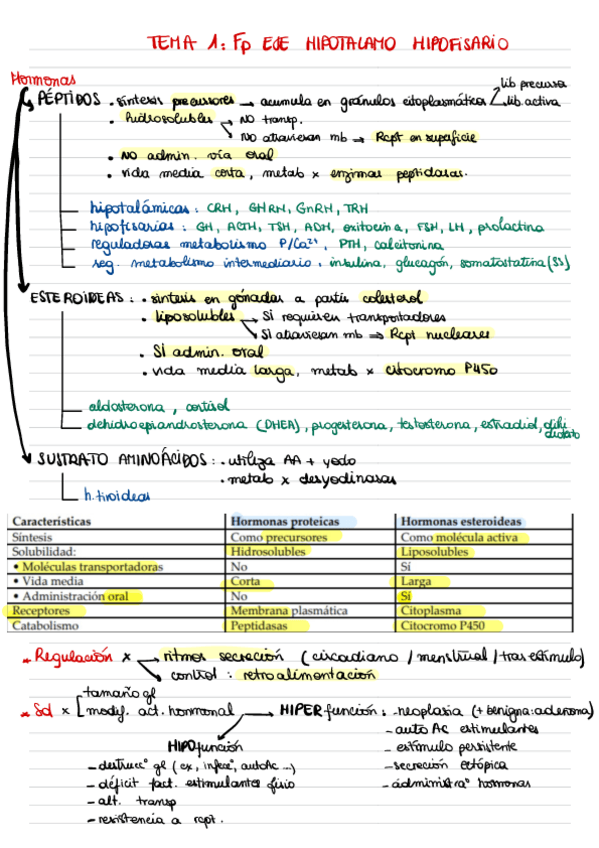 TEMA 1: Fp EJE HIPOTALAMO HIPOFISARIO
Hormonas
PÉPTIDOS • síntesis precursores → acumula en gránulos citoplasmáticos lib precursor
lib. activa
• hidrosolubles → NO transp.
NO atraviesan mb → Rcpt en superficie
• NO admin. vía oral
• vida media corta, metab x enzimas peptidasas.
hipotalámicas: CRH, GHRH, GnRH, TRH
hipofisarias: GH, ACTH, TSH, ADH, oxitocina, FSH, LH, prolactina
reguladoras metabolismo P/Ca²⁺, PTH, calcitonina
reg. metabolismo intermediario: insulina, glucagón, somatostatina (SS)
ESTEROIDEAS: • síntesis en gónadas a partir colesterol
• liposolubles → Sí requieren transportadores
Sí atraviesan mb ⇒ Rcpt nucleares
• Sí admin. oral
• vida media larga, metab x citocromo P450
aldosterona, cortisol
dehidroepiandrosterona (DHEA), progesterona, testosterona, estradiol,
SUSTRATO AMINOÁCIDOS: • utiliza AA + yodo
• metab x desyodinasas
h. tiroideas
Características Hormonas proteicas Hormonas esteroideas
Síntesis Como precursores Como molécula activa
Solubilidad: Hidrosolubles Liposolubles
• Moléculas transportadoras No Sí
• Vida media Corta Larga
• Administración oral No Sí
Receptores Membrana plasmática Citoplasma
Catabolismo Peptidasas Citocromo P450
* Regulación x → ritmos secreción (circadiano / menstrual / tras estímulo)
control: retroalimentación
* Sd x [ tamaño gl
modif. act. hormonal → HIPERfunción: - neoplasia (+ benigna: adenoma)
- auto AC estimulantes
- estímulo persistente
- secreción ectópica
- administraº hormonas
HIPOfunción
- destruccº gl (ex, infecº, autoAc...)
- déficit fact. estimulantes fisio
- alt. transp
- resistencia a rcpt.